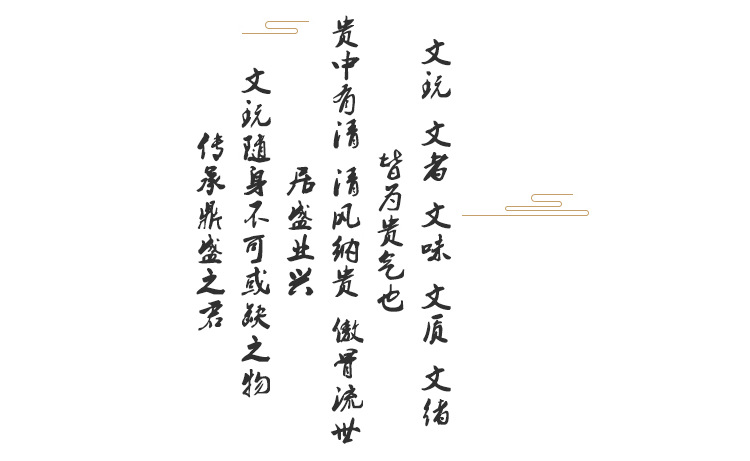 文玩 文者 文味 文质 文绪
皆为贵气也
贵中有清 清风纳贵 傲骨流世
居盛业兴
文玩随身不可或缺之物
传承鼎盛之君